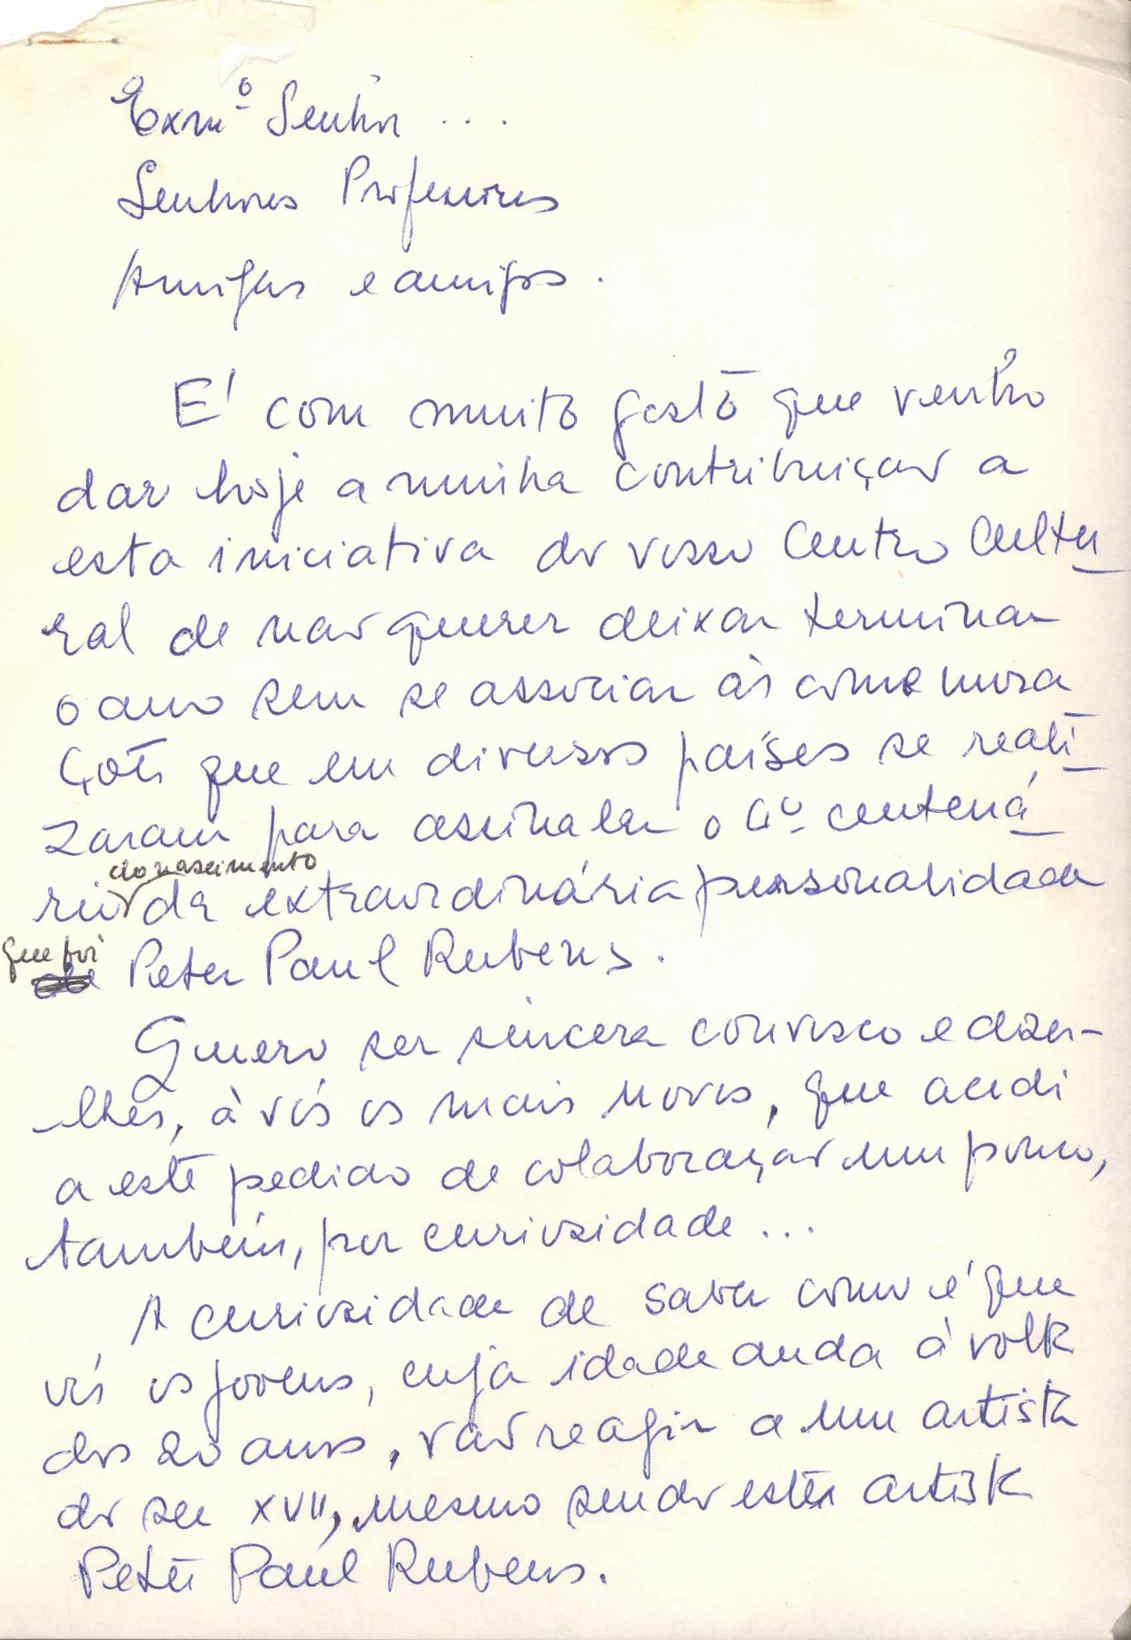 Exmº Senhor ...
Senhores Professores
Amigas e amigos.
E' com muito gosto que venho
dar hoje a minha contribuição a
esta iniciativa do vosso Centro Cultu
ral de não querer deixar terminar
o ano sem se associar às comemora
ções que em diversos países se reali
zaram para assinalar o 4º centená
do nascimento
rio da extraordinária personalidade
que foi
de Peter Paul Rubens.
Quero ser sincera convosco e dizer-
lhes, à vós os mais novos, que acedi
a este pedido de colaboração um pouco,
também, por curiosidade...
A curiosidade de saber como é que
vós os jovens, cuja idade anda à volta
dos 20 anos, vão reagir a um artista
do séc XVII, mesmo sendo este artista
Peter Paul Rubens.